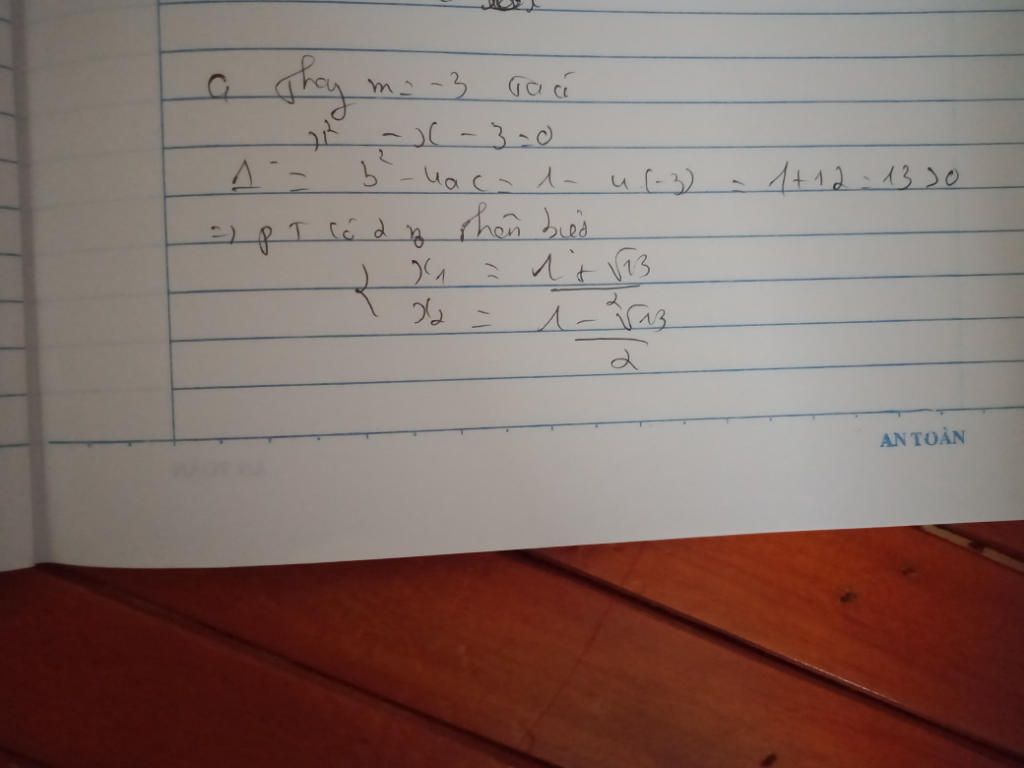 a Thay m = -3 ta có
x² - x - 3 = 0
Δ = b² - 4ac = 1 - 4(-3) = 1+12 = 13 > 0
=> PT có 2 n₀ phân biệt
{ x₁ = (1 + √13)/2
x₂ = (1 - √13)/2
AN TOÀN